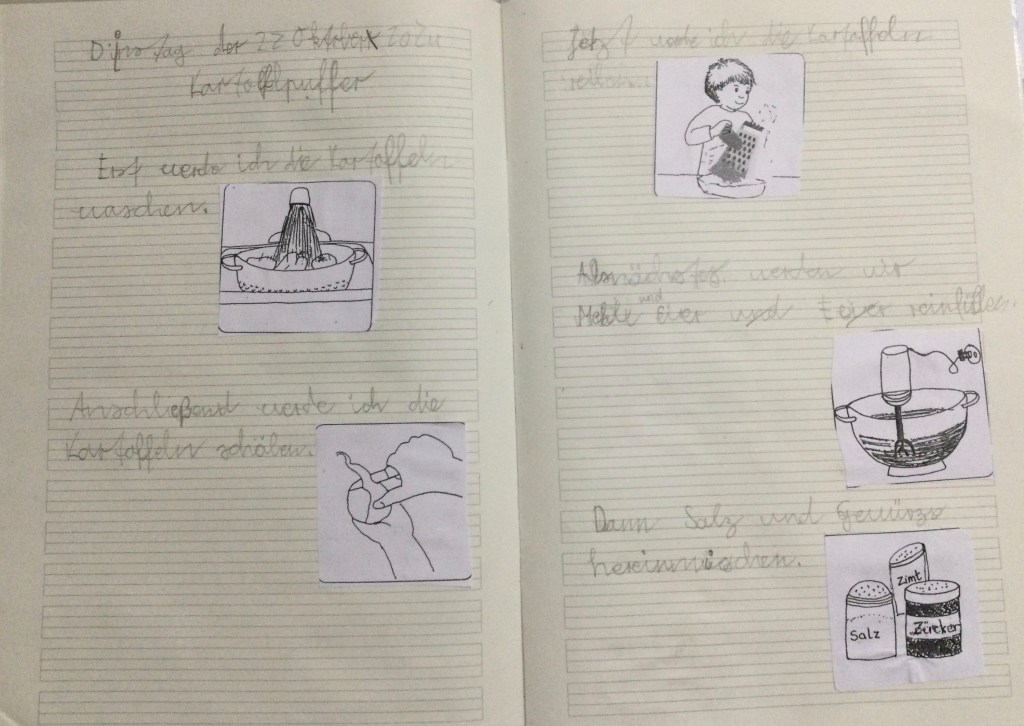 Dinstag der 22 Oktober 2024
Kartoffelpuffer
Erst werde ich die Kartoffeln
waschen.
Anschließend werde ich die
Kartoffeln schälen.
Jetzt werde ich die Kartoffeln
reiben.
Alsnächstes werden wir
Mehle und Eier und Eeier reinfüllen.
Dann Salz und Gewürze
hereinmischen.
Zimt
Salz
Zucker